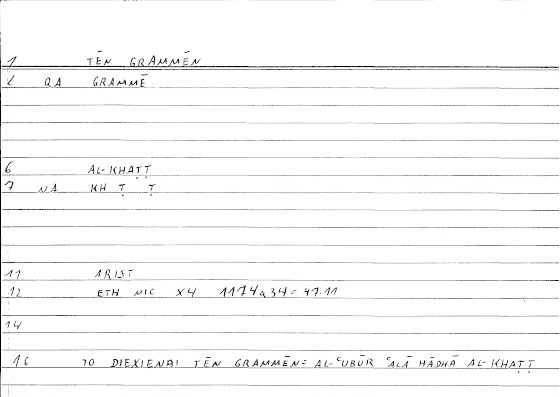 1 TĒN GRAMMĒN
2 QA GRAMMĒ
6 AL-KHAṬṬ
7 NA KH Ṭ Ṭ
11 ARIST
12 ETH NIC X4 1174a34 = 47.11
14
16 TO DIEXIENAI TĒN GRAMMĒN = AL-ʿUBŪR ʿALĀ HĀDHĀ AL-KHAṬṬ